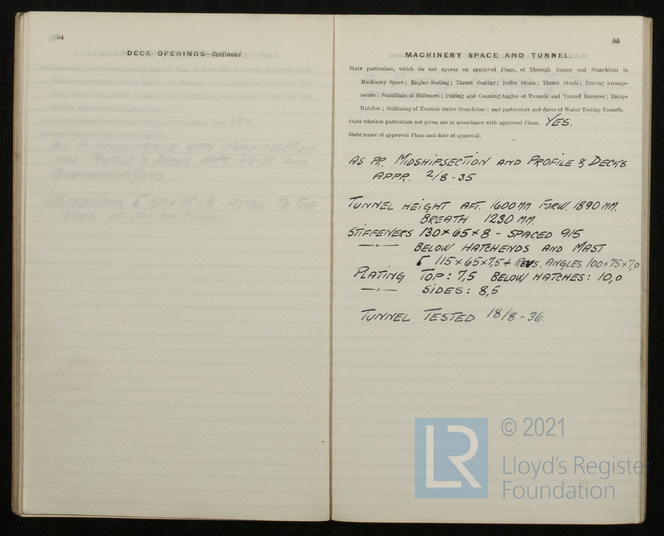 54
DECK OPENINGS Continued.
YES
ALL IN ACCORDANCE WITH MIDSHIPSECTION
AND PROFILE & DECKS APPR. AND
STIFFENERS 150 × 75 × 8 FITTED TO THE
ENDS OF THE HATCHWAY.
55
MACHINERY SPACE AND TUNNEL.
State particulars, which do not appear on approved Plans, of Through Beams and Stanchions in
Machinery Space; Engine Seating; Thrust Seating; Boiler Stools; Thrust Stools; Bracing Arrange-
ments; Scantlings of Stiffeners; Plating and Coaming Angles of Tunnels and Tunnel Recesses; Escape
Hatches; Stiffening of Tunnels under Stanchions; and particulars and dates of Water Testing Tunnels.
State whether particulars not given are in accordance with approved Plans. YES.
State name of approved Plans and date of approval.
AS PR. MIDSHIPSECTION AND PROFILE & DECKS
APPR. 2/8-35
TUNNEL HEIGHT AFT. 1600 MM FORW. 1890 MM.
BREATH 1230 MM.
STIFFENERS 130×65×8 - SPACED 915
—"— BELOW HATCHENDS AND MAST
115×65×7,5 + REVS. ANGLES 100×75×7,0
PLATING TOP: 7,5 BELOW HATCHES: 10,0
—"— SIDES: 8,5
TUNNEL TESTED 18/8-36.
LR
© 2021
Lloyd's Register
Foundation